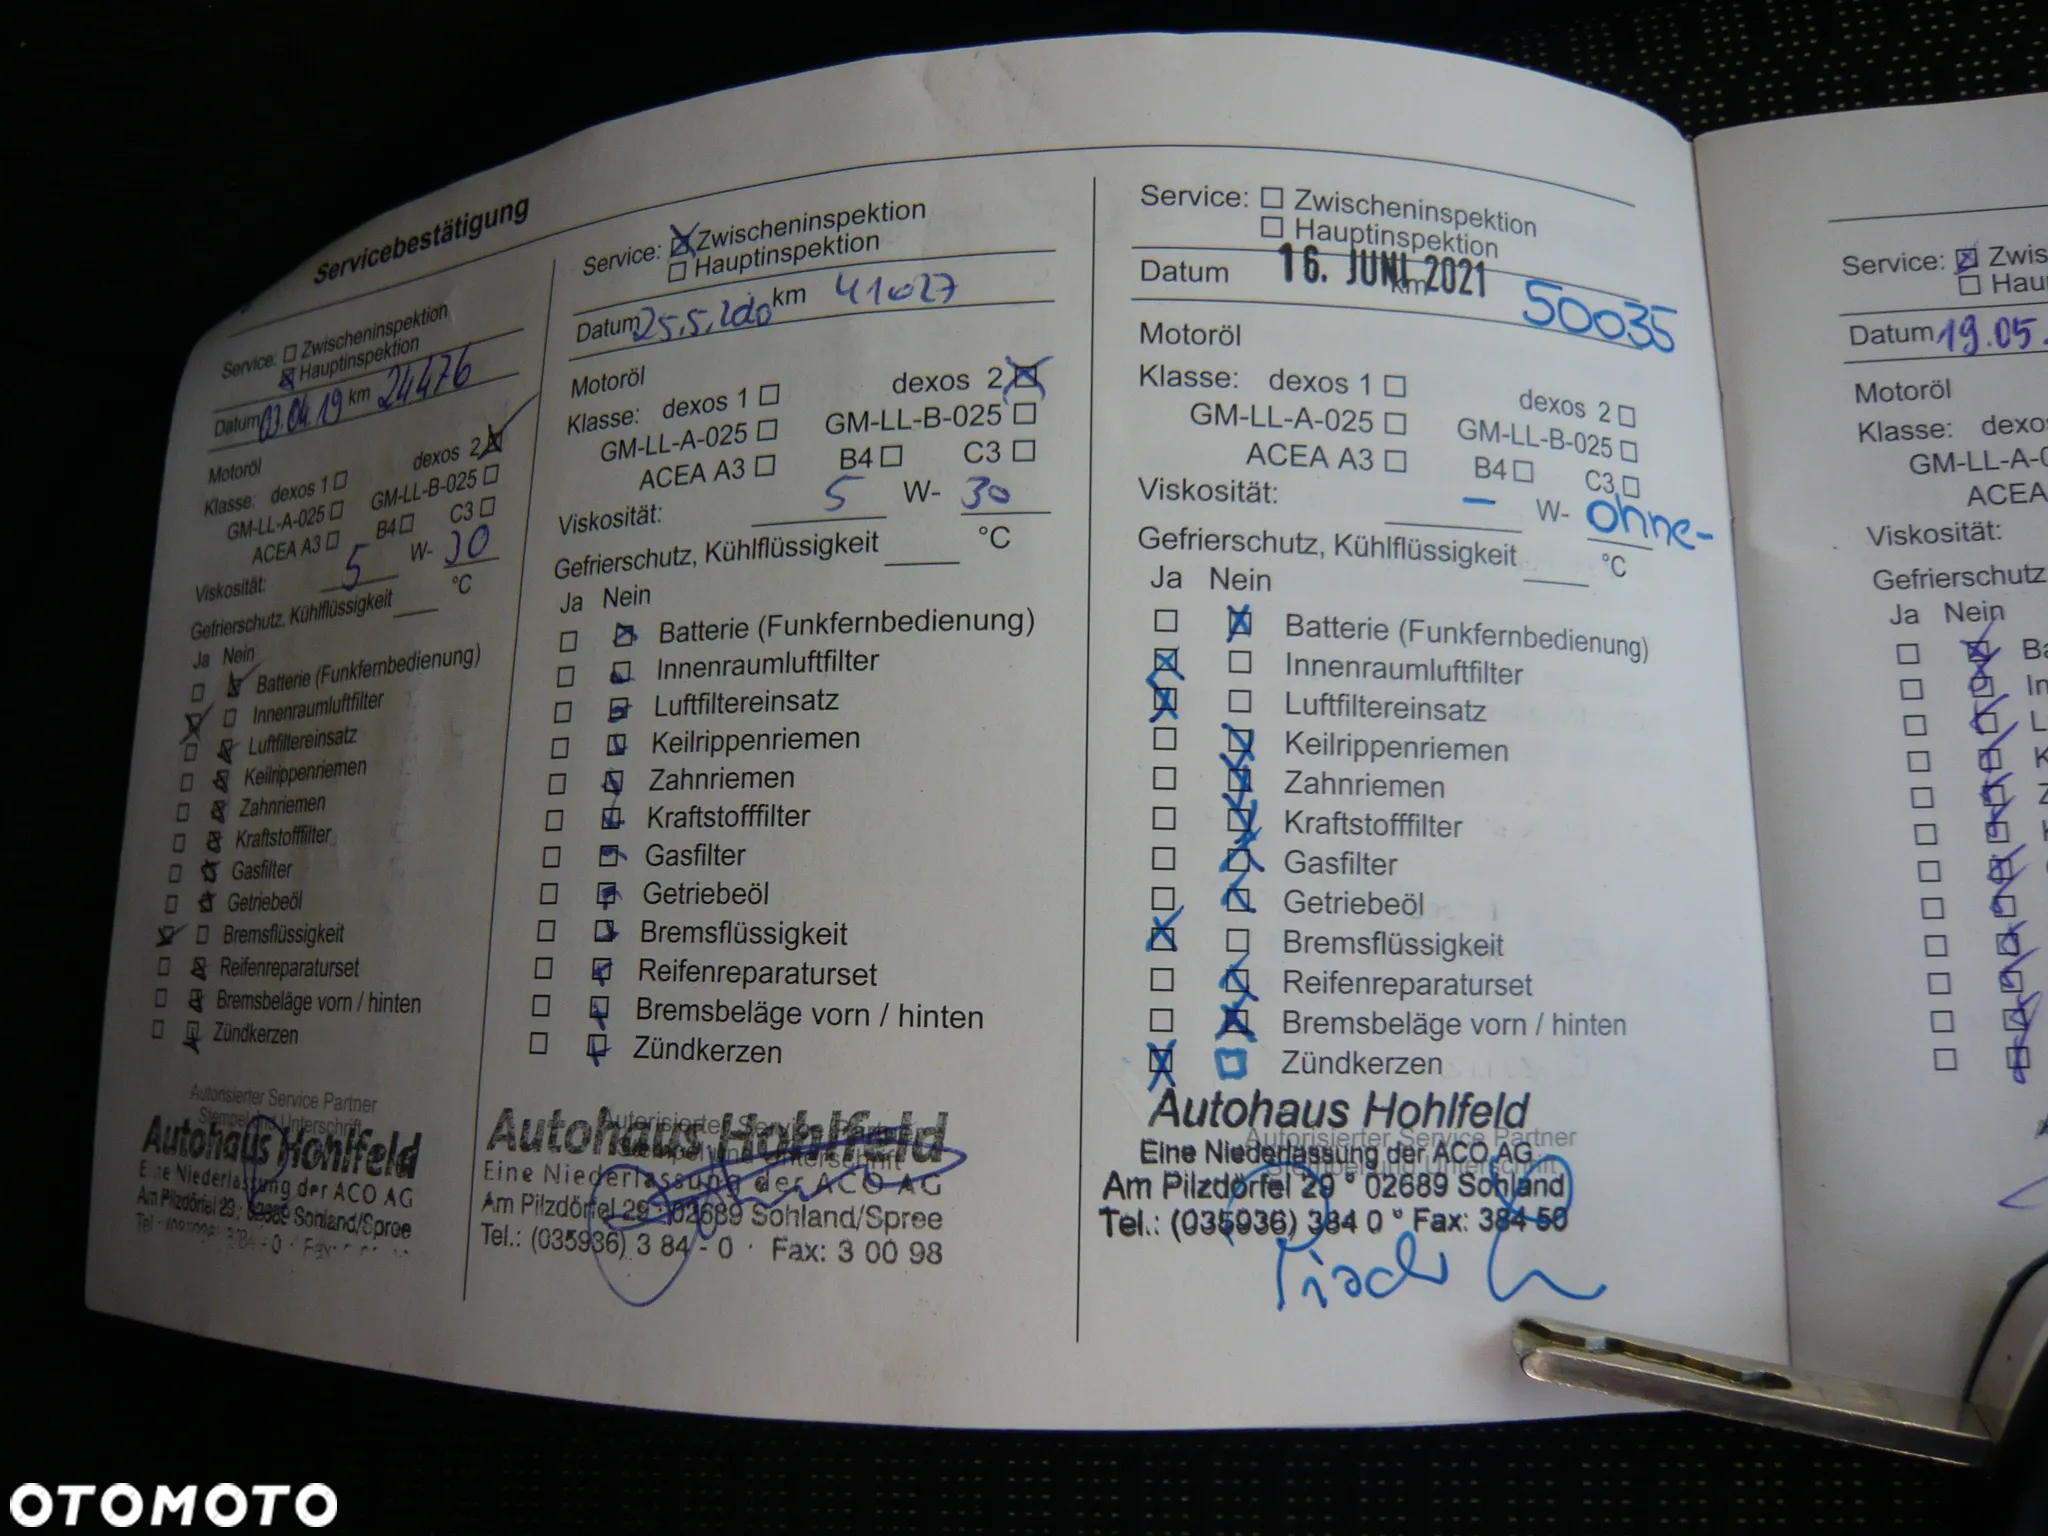 Servicebestätigung
Service: Zwischeninspektion
Hauptinspektion
Datum 03.04.19 km 24476
Motoröl
Klasse: dexos 1 dexos 2
GM-LL-A-025 GM-LL-B-025
ACEA A3 B4 C3
Viskosität: 5 W- 30
Gefrierschutz, Kühlflüssigkeit °C
Ja Nein
Batterie (Funkfernbedienung)
Innenraumluftfilter
Luftfiltereinsatz
Keilrippenriemen
Zahnriemen
Kraftstofffilter
Gasfilter
Getriebeöl
Bremsflüssigkeit
Reifenreparaturset
Bremsbeläge vorn / hinten
Zündkerzen
Autorisierter Service Partner
Stempel und Unterschrift
Autohaus Hohlfeld
Eine Niederlassung der ACO AG
Am Pilzdörfel 29 · 02689 Sohland/Spree
Service: Zwischeninspektion
Hauptinspektion
Datum 25.5.2020 km 41027
Motoröl
Klasse: dexos 1 dexos 2
GM-LL-A-025 GM-LL-B-025
ACEA A3 B4 C3
Viskosität: 5 W- 30
Gefrierschutz, Kühlflüssigkeit °C
Ja Nein
Batterie (Funkfernbedienung)
Innenraumluftfilter
Luftfiltereinsatz
Keilrippenriemen
Zahnriemen
Kraftstofffilter
Gasfilter
Getriebeöl
Bremsflüssigkeit
Reifenreparaturset
Bremsbeläge vorn / hinten
Zündkerzen
Autorisierter Service Partner
Stempel und Unterschrift
Autohaus Hohlfeld
Eine Niederlassung der ACO AG
Am Pilzdörfel 29 · 02689 Sohland/Spree
Tel.: (035936) 3 84 - 0 · Fax: 3 00 98
Service: Zwischeninspektion
Hauptinspektion
Datum 16. JUNI 2021 km 50035
Motoröl
Klasse: dexos 1 dexos 2
GM-LL-A-025 GM-LL-B-025
ACEA A3 B4 C3
Viskosität: – W- ohne-
Gefrierschutz, Kühlflüssigkeit °C
Ja Nein
Batterie (Funkfernbedienung)
Innenraumluftfilter
Luftfiltereinsatz
Keilrippenriemen
Zahnriemen
Kraftstofffilter
Gasfilter
Getriebeöl
Bremsflüssigkeit
Reifenreparaturset
Bremsbeläge vorn / hinten
Zündkerzen
Autorisierter Service Partner
Stempel und Unterschrift
Autohaus Hohlfeld
Eine Niederlassung der ACO AG
Am Pilzdörfel 29 ° 02689 Sohland
Tel.: (035936) 384 0 ° Fax: 384 50
Service: Zwis
Hau
Datum 19.05.
Motoröl
Klasse: dexos
GM-LL-A-0
ACEA
Viskosität:
Gefrierschutz
Ja Nein
OTOMOTO